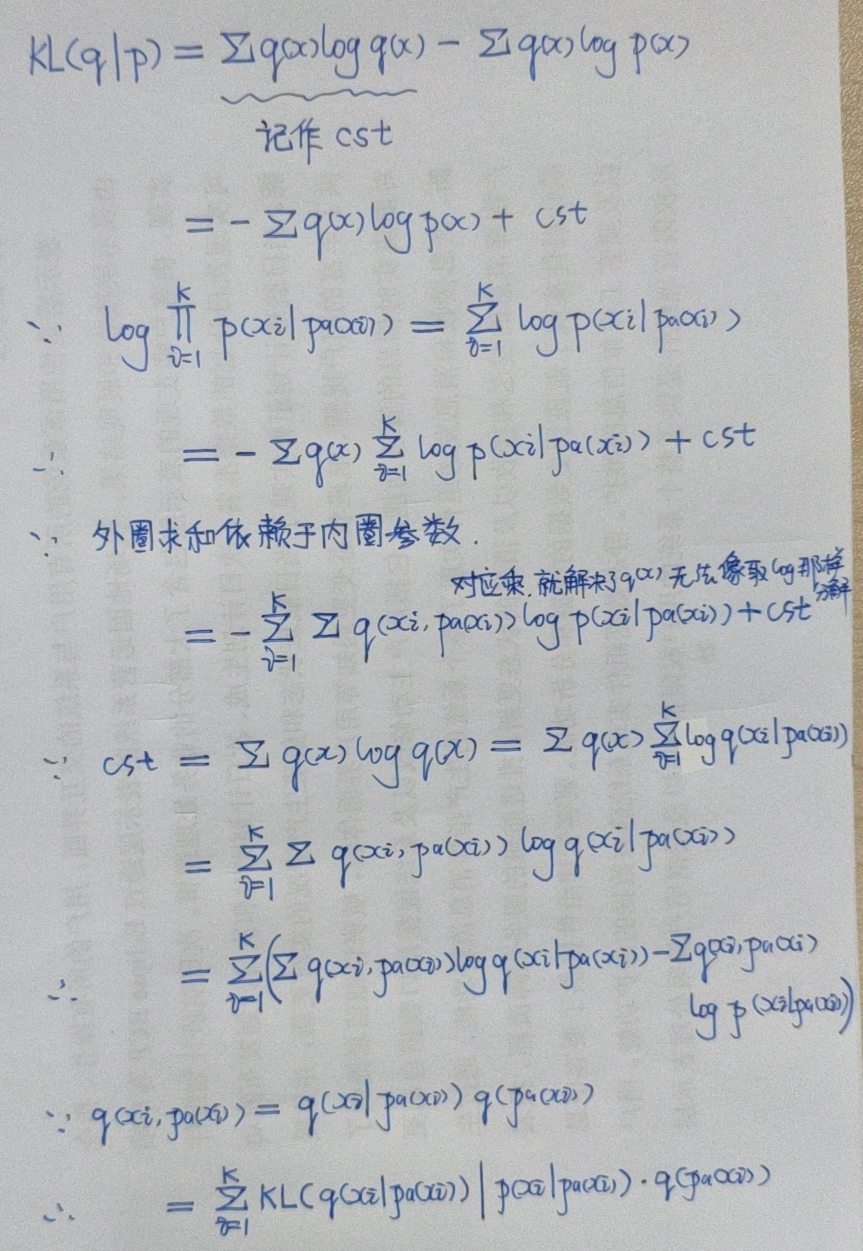 KL(q|p) = Σ q(x) log q(x) - Σ q(x) log p(x)
记作 cst
= - Σ q(x) log p(x) + cst
∵ log ∏_{i=1}^{K} p(xi|pa(xi)) = Σ_{i=1}^{K} log p(xi|pa(xi))
∴ = - Σ q(x) Σ_{i=1}^{K} log p(xi|pa(xi)) + cst
∵ 外圈求和依赖于内圈参数.
对应乘, 就解决了q(x) 无法像取log那样分解
= - Σ_{i=1}^{K} Σ q(xi, pa(xi)) log p(xi|pa(xi)) + cst
∵ cst = Σ q(x) log q(x) = Σ q(x) Σ_{i=1}^{K} log q(xi|pa(xi))
= Σ_{i=1}^{K} Σ q(xi, pa(xi)) log q(xi|pa(xi))
∴ = Σ_{i=1}^{K} (Σ q(xi, pa(xi)) log q(xi|pa(xi)) - Σ q(xi, pa(xi)
log p(xi|pa(xi)))
∵ q(xi, pa(xi)) = q(xi|pa(xi)) q(pa(xi))
∴ = Σ_{i=1}^{K} KL(q(xi|pa(xi)) | p(xi|pa(xi)) · q(pa(xi))